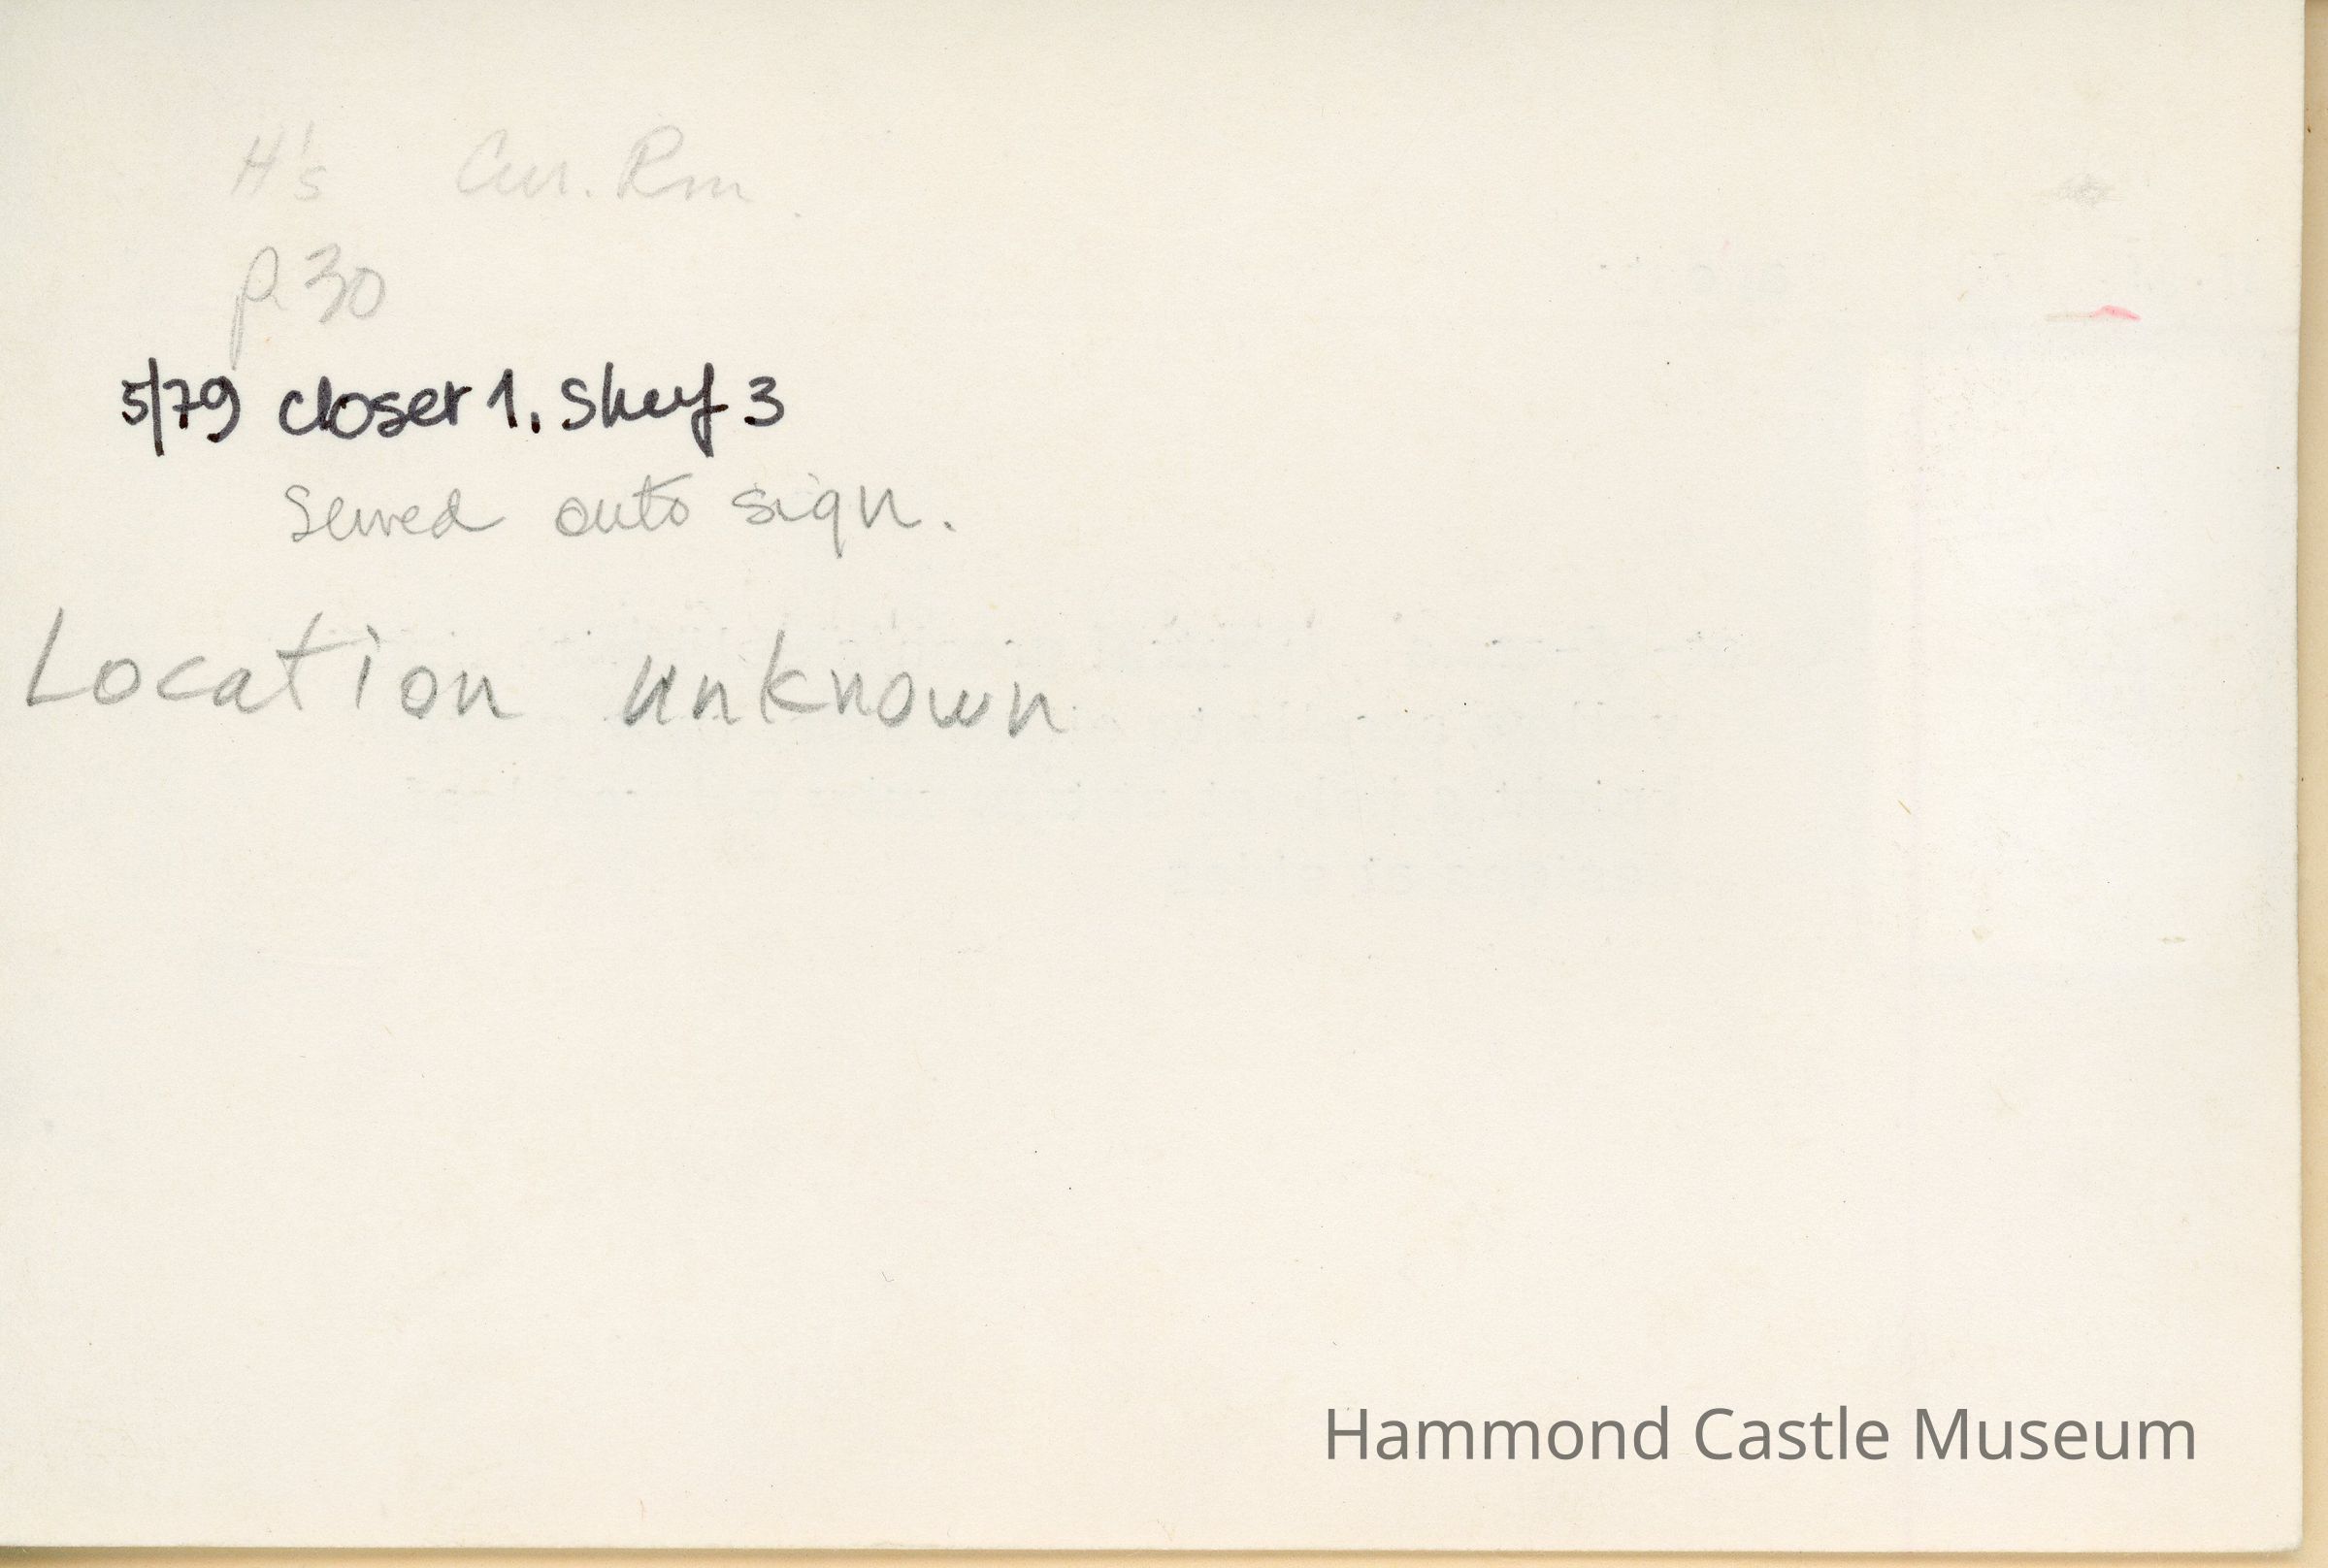 H's Cur. Rm.
p. 30
5/79 Closet 1, Shelf 3
Sewed onto sign.
Location unknown
Hammond Castle Museum